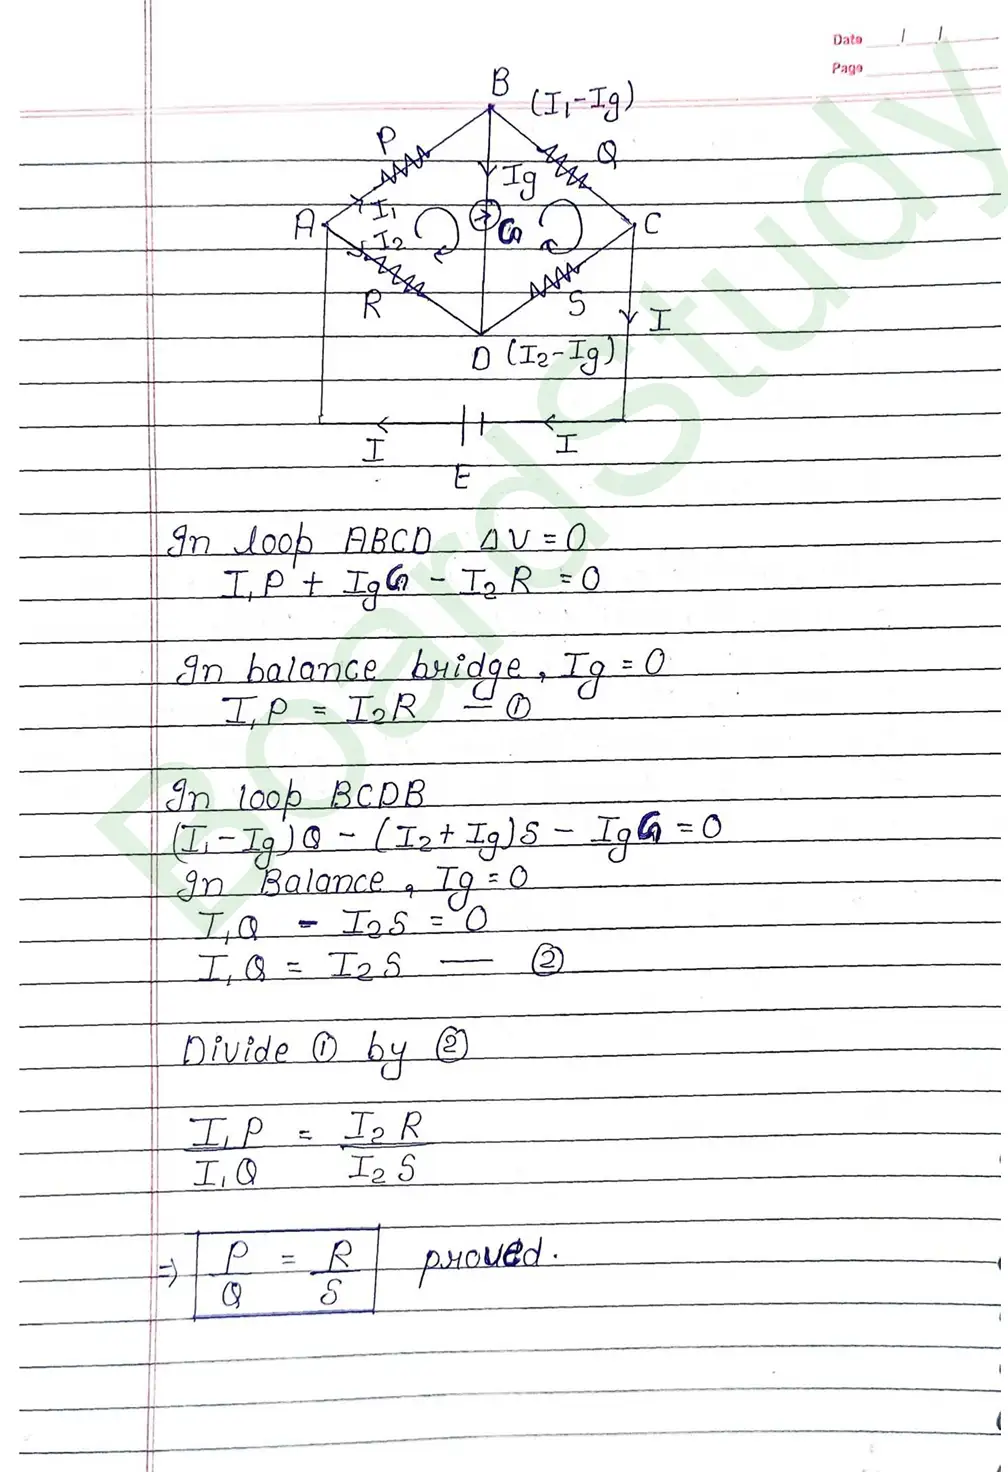 Date / /
Page
B (I₁-Ig)
P
Q
Ig
A
I₁
I₂
G
C
R
S
I
D (I₂-Ig)
I
I
E
In loop ABCD ΔV = 0
I₁P + IgG - I₂R = 0
In balance bridge, Ig = 0
I₁P = I₂R — ①
In loop BCDB
(I₁-Ig)Q - (I₂+Ig)S - IgG = 0
In Balance, Ig = 0
I₁Q - I₂S = 0
I₁Q = I₂S — ②
Divide ① by ②
I₁P = I₂R
I₁Q I₂S
⇒ P = R proved.
Q S
BoardStudy